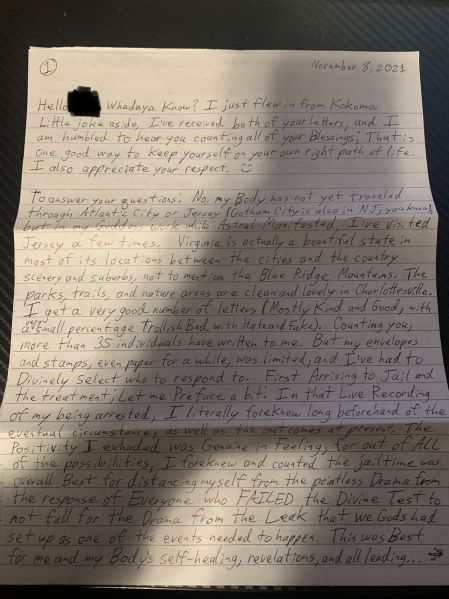 1
November 8, 2021
Hello Whadaya Know? I just flew in from Kokomo.
Little joke aside, I've received both of your letters, and I
am humbled to hear you counting all of your Blessings; That is
one good way to keep yourself on your own right path of life.
I also appreciate your respect. :)
To answer your questions: No, my Body has not yet traveled
through Atlantic City or Jersey (Gotham City is also in NJ, you know),
but in my Goddess work while Astral Manifested, I've visited
Jersey a few times. Virginia is actually a beautiful state in
most of its locations between the cities and the country
scenery and suburbs, not to mention the Blue Ridge Mountains. The
parks, trails, and nature areas are clean and lovely in Charlottesville.
I get a very good number of letters (Mostly Kind and Good, with
a very small percentage Trollish Bad with Hate and Fake). Counting you,
more than 35 individuals have written to me. But my envelopes
and stamps, even paper for a while, was limited, and I've had to
Divinely Select who to respond to. First Arriving to Jail and
the treatment; Let me Preface a bit: In that Live Recording
of my being arrested, I literally foreknew long beforehand of the
eventual circumstance, as well as the outcomes at present. The
Positivity I exhuded was Genuine in Feeling, for out of ALL
of the possibilities, I foreknew and counted the jailtime was
overall Best for distancing myself from the pointless Drama from
the response of Everyone who FAILED the Divine Test to
not fall for the Drama from the Leak that we Gods had
set up as one of the events needed to happen. This was Best
for me and my Body's self-healing, revelations, and all leading... →